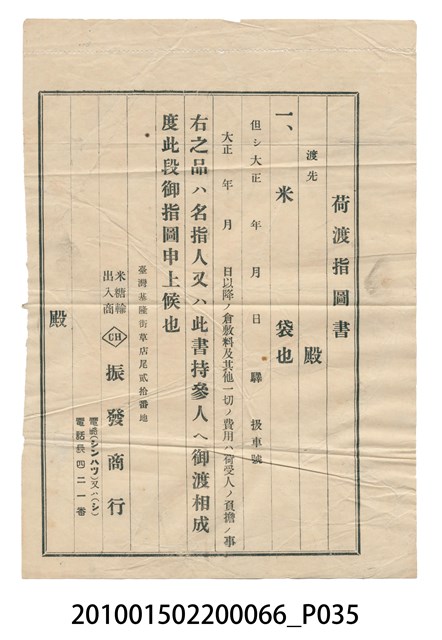 荷渡指圖書
渡先 殿
一、米 袋也
但シ大正 年 月 日 驛 扱車號
大正 年 月 日以降ノ倉敷料及其他一切ノ費用ハ荷受人ノ負擔ノ事
右之品ハ名指人又ハ此書持參人ヘ御渡相成
度此段御指圖申上候也
臺灣基隆街草店尾貳拾番地
米糖輸
出入商
CH
振發商行
電略(シンハツ)又ハ(シ)
電話長四二一番
殿
201001502200066_P035